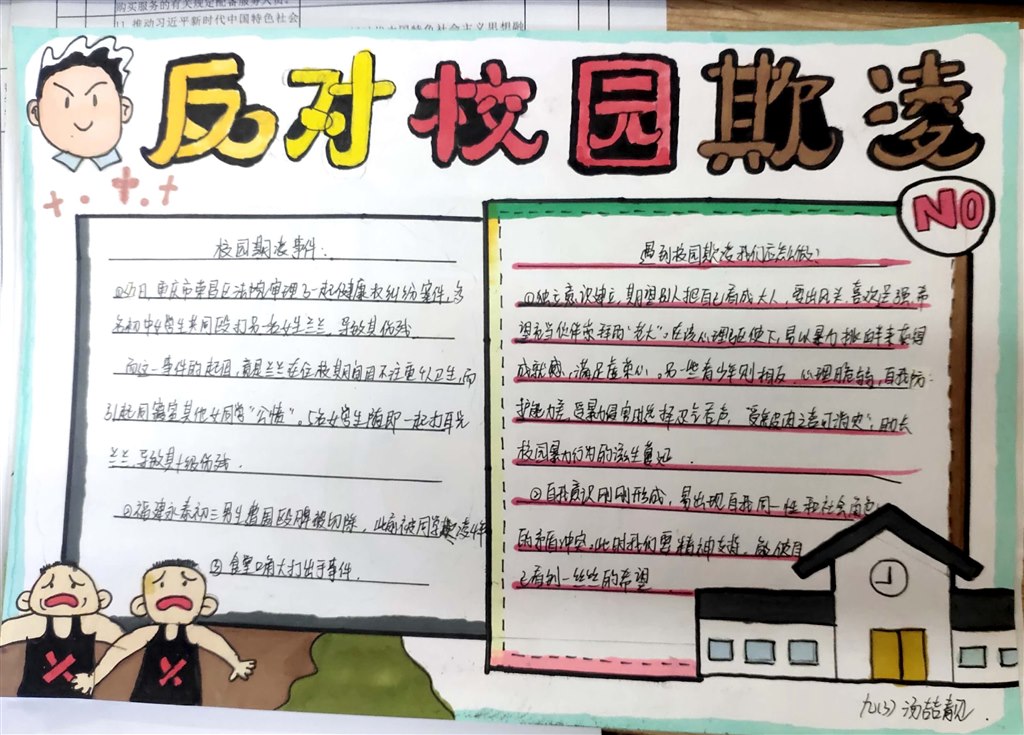 购买服务的有关规定配备服务人员。
11. 推动习近平新时代中国特色社会
反对校园欺凌
NO
校园欺凌事件:
①近日,重庆市荣昌区法院审理了一起健康权纠纷案件,多
名初中女学生共同殴打另一名女生兰兰,导致其伤残
而这一事件的起因,竟是兰兰在住校期间因不注重个人卫生,而
引起同寝室其他女同学“公愤”。5名女学生随即一起打耳光
兰兰,导致其十级伤残.
②福建永春初三男生遭围殴脾被切除,此前被同学欺凌4年
③食堂口角大打出手事件.
遇到校园欺凌我们应怎么做?
①独立意识建立,期望别人把自己看成大人,要出风头喜欢逞强希
望充当伙伴崇拜的“老大”。在该心理驱使下,易以暴力挑衅来获得
成就感,满足虚荣心。另一些青少年则相反,心理脆弱,自我防
护能力差,受暴力侵害时选择忍气吞声,“受些皮肉之苦可消灾”,助长
校园暴力行为的滋生蔓延.
②自我意识刚刚形成,易出现自我同一性和社会角色
的矛盾冲突.此时我们要精神支持,能使自
己看到一丝丝的希望
九(3) 汤喆靓.